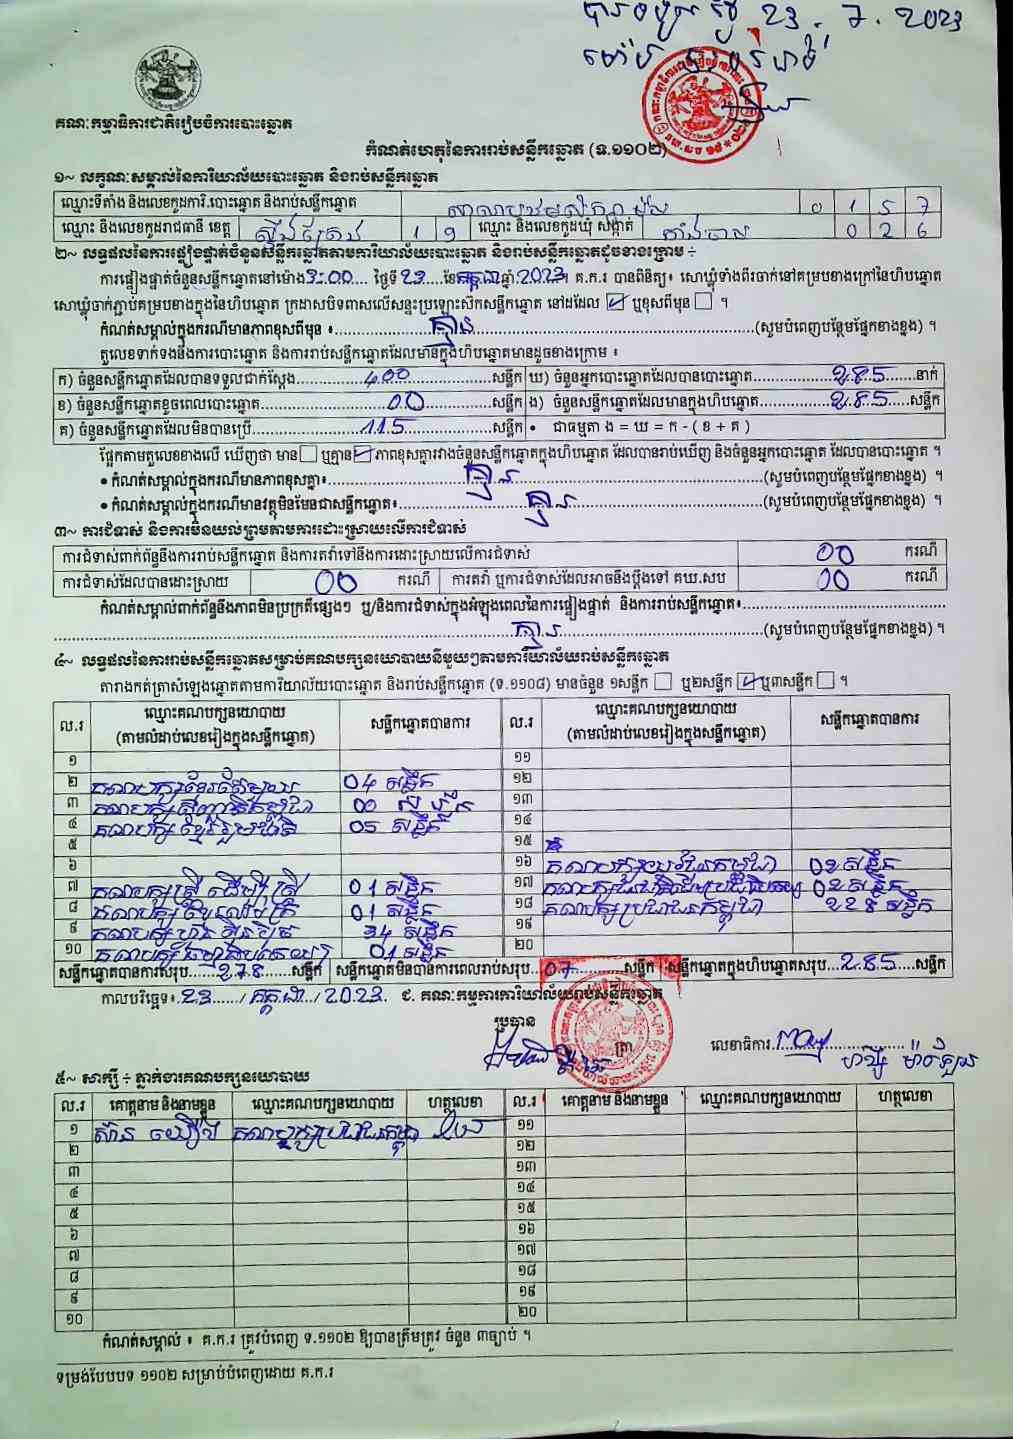 23.7.2023
គណៈកម្មាធិការជាតិរៀបចំការបោះឆ្នោត
កំណត់ហេតុនៃការរាប់សន្លឹកឆ្នោត (ទ.១១០២)
១~ លក្ខណៈសម្គាល់នៃការិយាល័យបោះឆ្នោត និងរាប់សន្លឹកឆ្នោត
ឈ្មោះទីតាំង និងលេខកូដការិ.បោះឆ្នោត និងរាប់សន្លឹកឆ្នោត 0 1 5 7
ឈ្មោះ និងលេខកូដរាជធានី ខេត្ត ស្ទឹងត្រែង 1 9 ឈ្មោះ និងលេខកូដឃុំ សង្កាត់ 0 2 6
២~ លទ្ធផលនៃការផ្ទៀងផ្ទាត់ចំនួនសន្លឹកឆ្នោតតាមការិយាល័យបោះឆ្នោត និងរាប់សន្លឹកឆ្នោតដូចខាងក្រោម ÷
ការផ្ទៀងផ្ទាត់ចំនួនសន្លឹកឆ្នោតនៅម៉ោង 3:00 ថ្ងៃទី 23 ខែ កក្កដា ឆ្នាំ 2023 ។ គ.ក.រ បានពិនិត្យ៖ សោឃ្លុំទាំងពីរចាក់នៅគម្របខាងក្រៅនៃហិបឆ្នោត
សោឃ្លុំចាក់ភ្ជាប់គម្របខាងក្នុងនៃហិបឆ្នោត ក្រដាសបិទពាសលើសន្ទះប្រឡោះស៊កសន្លឹកឆ្នោត នៅដដែល ☑ ឬខុសពីមុន ☐ ។
កំណត់សម្គាល់ក្នុងករណីមានភាពខុសពីមុន ៖ គ្មាន (សូមបំពេញបន្ថែមផ្នែកខាងខ្នង) ។
តួលេខទាក់ទងនឹងការបោះឆ្នោត និងការរាប់សន្លឹកឆ្នោតដែលមានក្នុងហិបឆ្នោតមានដូចខាងក្រោម ៖
ក) ចំនួនសន្លឹកឆ្នោតដែលបានទទួលជាក់ស្តែង 400 សន្លឹក ឃ) ចំនួនអ្នកបោះឆ្នោតដែលបានបោះឆ្នោត 285 នាក់
ខ) ចំនួនសន្លឹកឆ្នោតខូចពេលបោះឆ្នោត 00 សន្លឹក ង) ចំនួនសន្លឹកឆ្នោតដែលមានក្នុងហិបឆ្នោត 285 សន្លឹក
គ) ចំនួនសន្លឹកឆ្នោតដែលមិនបានប្រើ 115 សន្លឹក • ជាធម្មតា ង = ឃ = ក - ( ខ + គ )
ផ្អែកតាមតួលេខខាងលើ ឃើញថា មាន ☐ ឬគ្មាន ☑ ភាពខុសគ្នារវាងចំនួនសន្លឹកឆ្នោតក្នុងហិបឆ្នោត ដែលបានរាប់ឃើញ និងចំនួនអ្នកបោះឆ្នោត ដែលបានបោះឆ្នោត ។
• កំណត់សម្គាល់ក្នុងករណីមានភាពខុសគ្នា៖ គ្មាន (សូមបំពេញបន្ថែមផ្នែកខាងខ្នង) ។
• កំណត់សម្គាល់ក្នុងករណីមានវត្ថុមិនមែនជាសន្លឹកឆ្នោត៖ គ្មាន (សូមបំពេញបន្ថែមផ្នែកខាងខ្នង) ។
៣~ ការជំទាស់ និងការមិនយល់ព្រមតាមការដោះស្រាយលើការជំទាស់
ការជំទាស់ពាក់ព័ន្ធនឹងការរាប់សន្លឹកឆ្នោត និងការតវ៉ាទៅនឹងការដោះស្រាយលើការជំទាស់ 00 ករណី
ការជំទាស់ដែលបានដោះស្រាយ 00 ករណី ការតវ៉ា ឬការជំទាស់ដែលអាចនឹងប្តឹងទៅ គឃ.សប 00 ករណី
កំណត់សម្គាល់ពាក់ព័ន្ធនឹងភាពមិនប្រក្រតីផ្សេងៗ ឬ/និងការជំទាស់ក្នុងអំឡុងពេលនៃការផ្ទៀងផ្ទាត់ និងការរាប់សន្លឹកឆ្នោត៖
គ្មាន (សូមបំពេញបន្ថែមផ្នែកខាងខ្នង) ។
៤~ លទ្ធផលនៃការរាប់សន្លឹកឆ្នោតសម្រាប់គណបក្សនយោបាយនីមួយៗតាមការិយាល័យរាប់សន្លឹកឆ្នោត
តារាងកត់ត្រាសំឡេងឆ្នោតតាមការិយាល័យបោះឆ្នោត និងរាប់សន្លឹកឆ្នោត (ទ.១១០៨) មានចំនួន ១សន្លឹក ☐ ឬ២សន្លឹក ☑ ឬ៣សន្លឹក ☐ ។
ល.រ ឈ្មោះគណបក្សនយោបាយ (តាមលំដាប់លេខរៀងក្នុងសន្លឹកឆ្នោត) សន្លឹកឆ្នោតបានការ ល.រ ឈ្មោះគណបក្សនយោបាយ (តាមលំដាប់លេខរៀងក្នុងសន្លឹកឆ្នោត) សន្លឹកឆ្នោតបានការ
១ ១១
២ គណបក្សខ្មែរតែមួយ 04 សន្លឹក ១២
៣ 00 សន្លឹក ១៣
៤ គណបក្សខ្មែររួបរួមជាតិ 05 សន្លឹក ១៤
៥ ១៥
៦ ១៦ គណបក្សយុវជនកម្ពុជា 02 សន្លឹក
៧ គណបក្សស្ត្រីដើម្បីស្ត្រី 01 សន្លឹក ១៧ 02 សន្លឹក
៨ 01 សន្លឹក ១៨ គណបក្សប្រជាជនកម្ពុជា 228 សន្លឹក
៩ គណបក្សហ៊្វុនស៊ិនប៉ិច 34 សន្លឹក ១៩
១០ 01 សន្លឹក ២០
សន្លឹកឆ្នោតបានការសរុប 278 សន្លឹក សន្លឹកឆ្នោតមិនបានការពេលរាប់សរុប 07 សន្លឹក សន្លឹកឆ្នោតក្នុងហិបឆ្នោតសរុប 285 សន្លឹក
កាលបរិច្ឆេទ៖ 23 / កក្កដា / 2023 ជ. គណៈកម្មការការិយាល័យរាប់សន្លឹកឆ្នោត
ប្រធាន
ត្រា លេខាធិការ
៥~ សាក្សី ÷ ភ្នាក់ងារគណបក្សនយោបាយ
ល.រ គោត្តនាម និងនាមខ្លួន ឈ្មោះគណបក្សនយោបាយ ហត្ថលេខា ល.រ គោត្តនាម និងនាមខ្លួន ឈ្មោះគណបក្សនយោបាយ ហត្ថលេខា
១ គណបក្សប្រជាជនកម្ពុជា ១១
២ ១២
៣ ១៣
៤ ១៤
៥ ១៥
៦ ១៦
៧ ១៧
៨ ១៨
៩ ១៩
១០ ២០
កំណត់សម្គាល់ ៖ គ.ក.រ ត្រូវបំពេញ ទ.១១០២ ឱ្យបានត្រឹមត្រូវ ចំនួន ៣ច្បាប់ ។
ទម្រង់បែបបទ ១១០២ សម្រាប់បំពេញដោយ គ.ក.រ